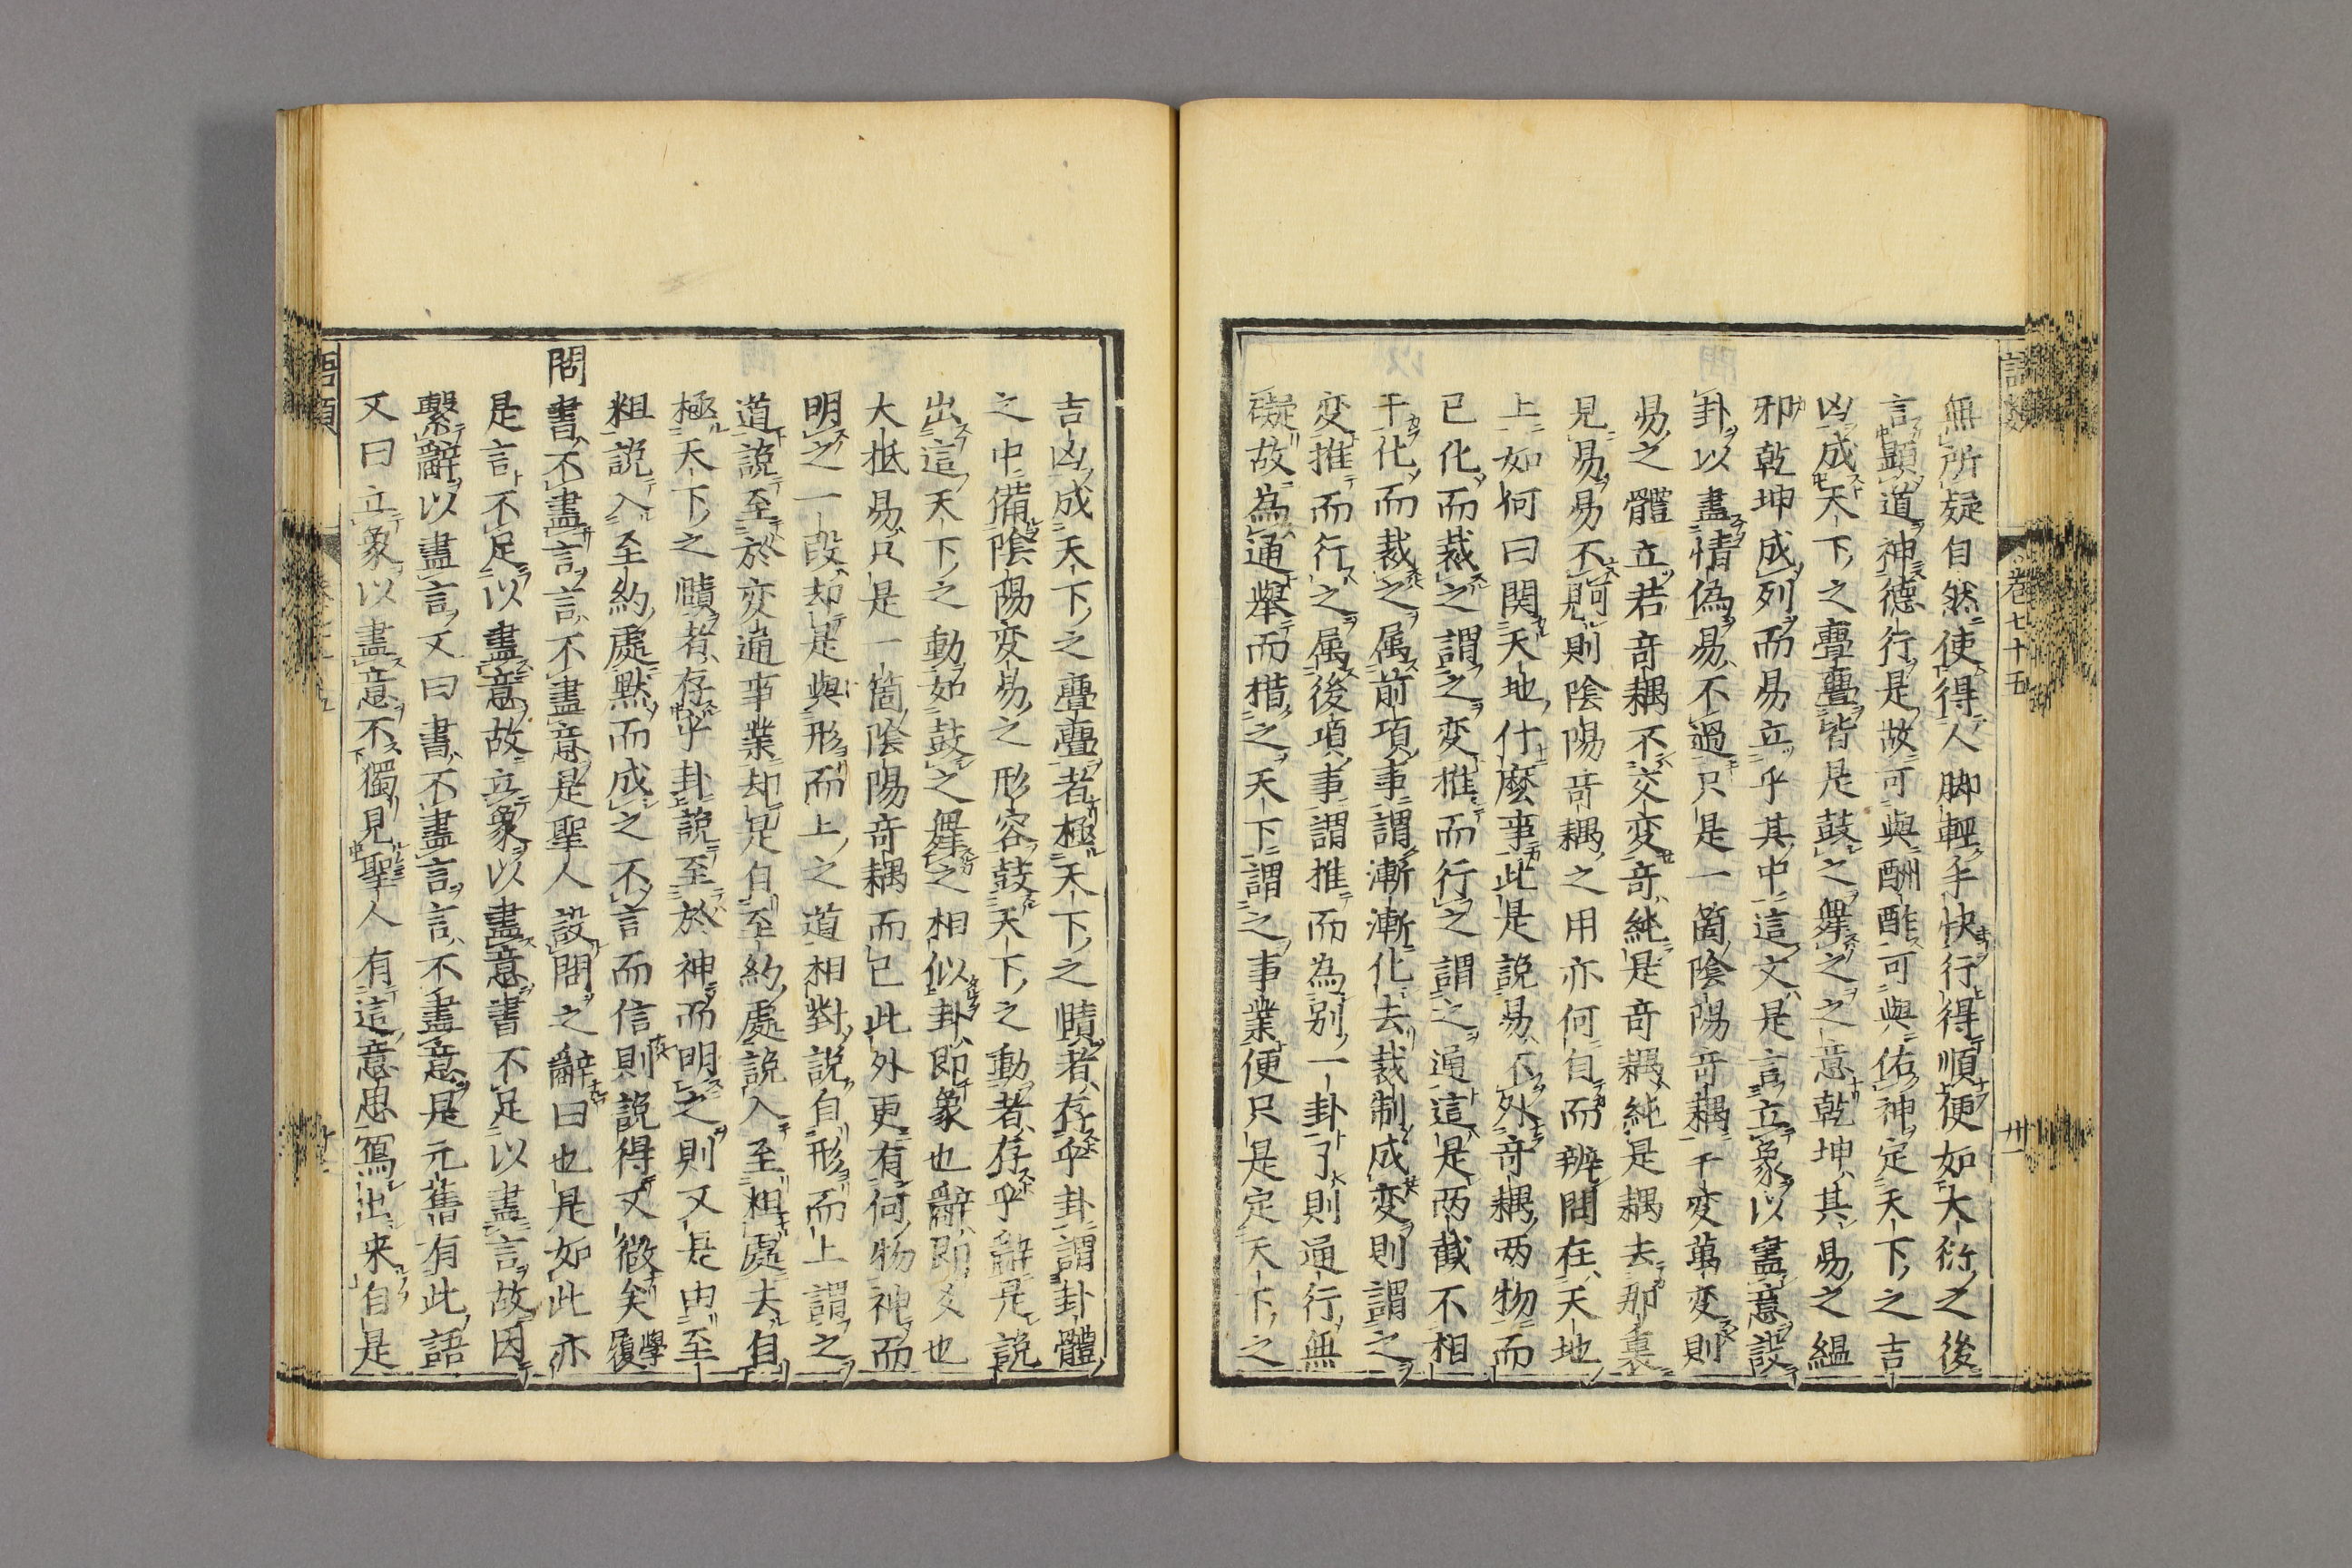 無所疑自然使得人脚輕手快行得順便如大衍之後
言顯道神德行是故可與酬酢可與佑神定天下之吉
凶成天下之亹亹皆是鼓之舞之之意乾坤其易之縕
邪乾坤成列而易立乎其中這文是言立象以盡意設
卦以盡情偽易不過只是一箇陰陽奇耦千変萬変則
易之體立若奇耦不交変奇純是奇耦純是耦去那裏
見易易不可見則陰陽奇耦之用亦何自而辨問在天地
上如何曰関天地什麼事此是說易不外奇耦两物而
已化而裁之謂之変推而行之謂之通這是两截不相
干化而裁之属前項事謂漸漸化去裁制成変則謂之
変推而行之属後項事謂推而為别一卦了則通行無
礙故為通舉而措之天下謂之事業便只是定天下之
語類
卷七十五
卅一
吉凶成天下之亹亹者極天下之賾者存乎卦謂卦體
之中備陰陽変易之形容鼓天下之動者存乎辭是說
出這天下之動如鼓之舞之相似卦即象也辭即爻也
大抵易只是一箇陰陽奇耦而已此外更有何物神而
明之一段却是與形而上之道相對說自形而上謂之
道說至於変通事業却是自至約處說入至粗處去自
極天下之賾者存乎卦說至於神而明之則又是由至
粗說入至約處黙而成之不言而信則說得又微矣 學履
問書不盡言言不盡意是聖人設問之辭曰也是如此亦
是言不足以盡意故立象以盡意書不足以盡言故因
繫辭以盡言又曰書不盡言言不盡意是元舊有此語
又曰立象以盡意不獨見聖人有這意思寫出来自是
語類